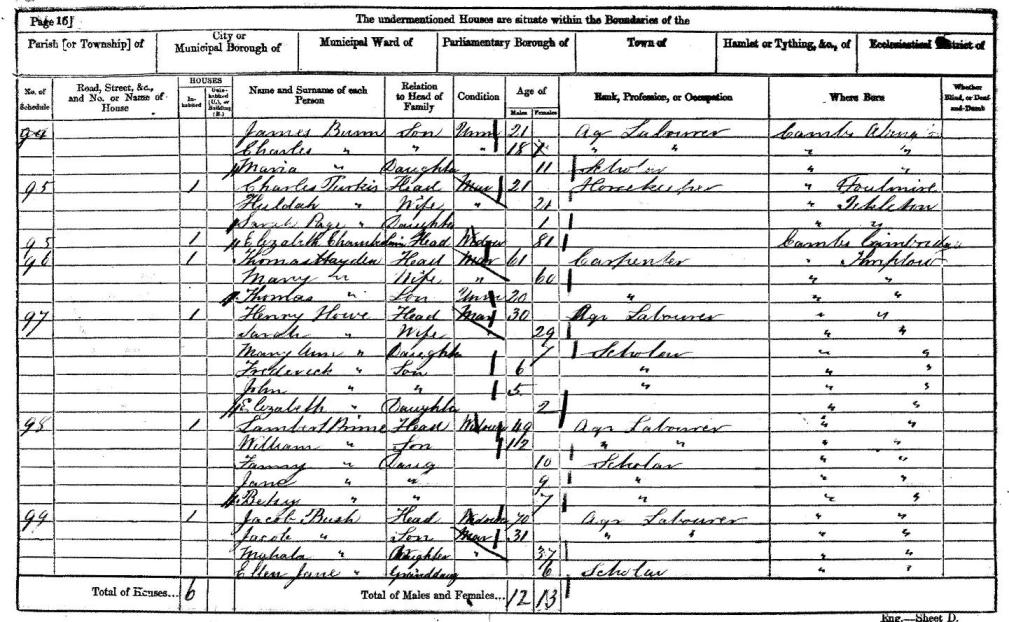 Page 15] The undermentioned Houses are situate within the Boundaries of the
Parish [or Township] of City or Municipal Borough of Municipal Ward of Parliamentary Borough of Town of Hamlet or Tything, &c., of Ecclesiastical District of
No. of Schedule Road, Street, &c., and No. or Name of House HOUSES Inhabited Uninhabited (U.), or Building (B.) Name and Surname of each Person Relation to Head of Family Condition Age of Males Females Rank, Profession, or Occupation Where Born Whether Blind, or Deaf-and-Dumb
94 James Son Unm 21 Ag Labourer Cambs
Charles " " " 18 " " " "
Maria " Daughter 11 Scholar " "
95 1 Charles Head Mar 21 Horsekeeper " Foulmire
Huldah " Wife " 21 " Ickleton
Sarah Page " Daughter 1 " "
95 1 Elizabeth Head Widow 81 Cambs Cambridge
96 1 Thomas Hayden Head Mar 61 Carpenter "
Mary " Wife " 60 " "
Thomas " Son Unm 20 " " "
97 1 Henry Howe Head Mar 30 Agr Labourer " "
Sarah " Wife 29 " "
Mary Ann " Daughter 7 Scholar " "
Frederick " Son 6 " " "
John " " 5 " " "
Elizabeth " Daughter 2 " "
98 1 Lambert Prime Head Widower 49 Agr Labourer " "
William " Son 12 " " " "
Fanny " Daug 10 Scholar " "
Jane " " 9 " " "
Betsy " " 7 " " "
99 1 Jacob Bush Head Widower 70 Agr Labourer " "
Jacob " Son Mar 31 " " " "
Mahala " Daughter " 37 "
Ellen Jane " Granddaug 6 Scholar " "
Total of Houses... 6 Total of Males and Females... 12 13
Eng.—Sheet D.